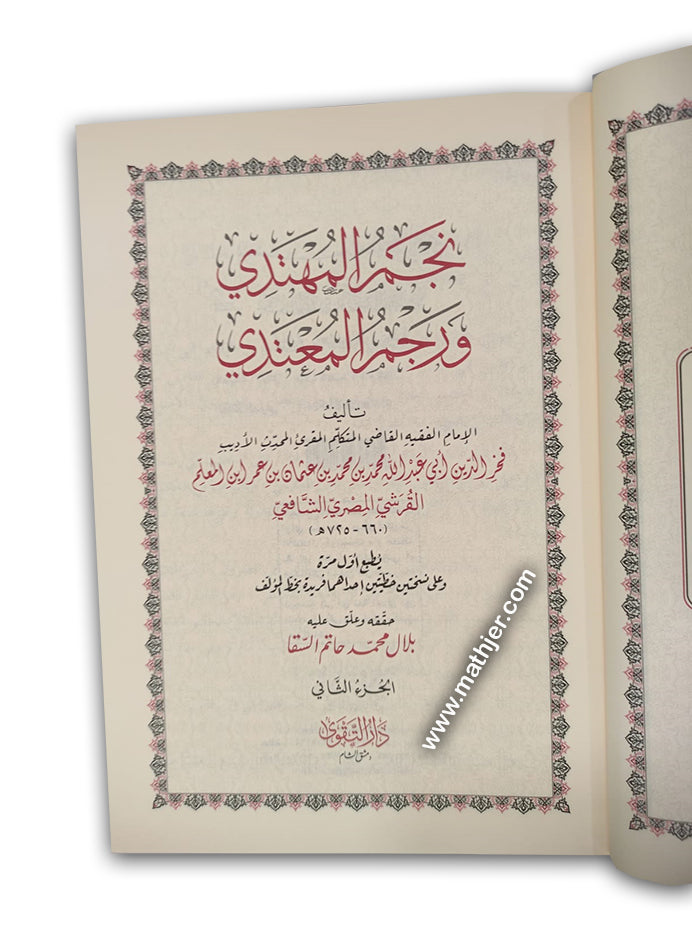 نَجْمُ المُهْتَدِي
وَرَجْمُ المُعْتَدِي
تأليفُ
الإمام الفقيه القاضي المتكلّم المقرئ المحدّث الأديب
فخر الدّين أبي عبد الله محمّد بن محمّد بن عثمان بن عمر ابن المعلّم
القُرَشيّ المِصْريّ الشّافعيّ
(٦٦٠ - ٧٢٥ هـ)
يُطبع أوّل مرّة
وعلى نسختين خطيّتين إحداهما فريدة بخطّ المؤلف
حقّقه وعلّق عليه
بلال محمّد حاتم السّقا
الجُزءُ الثّاني
دار التّقوى
دمشق الشام
www.mathjer.com